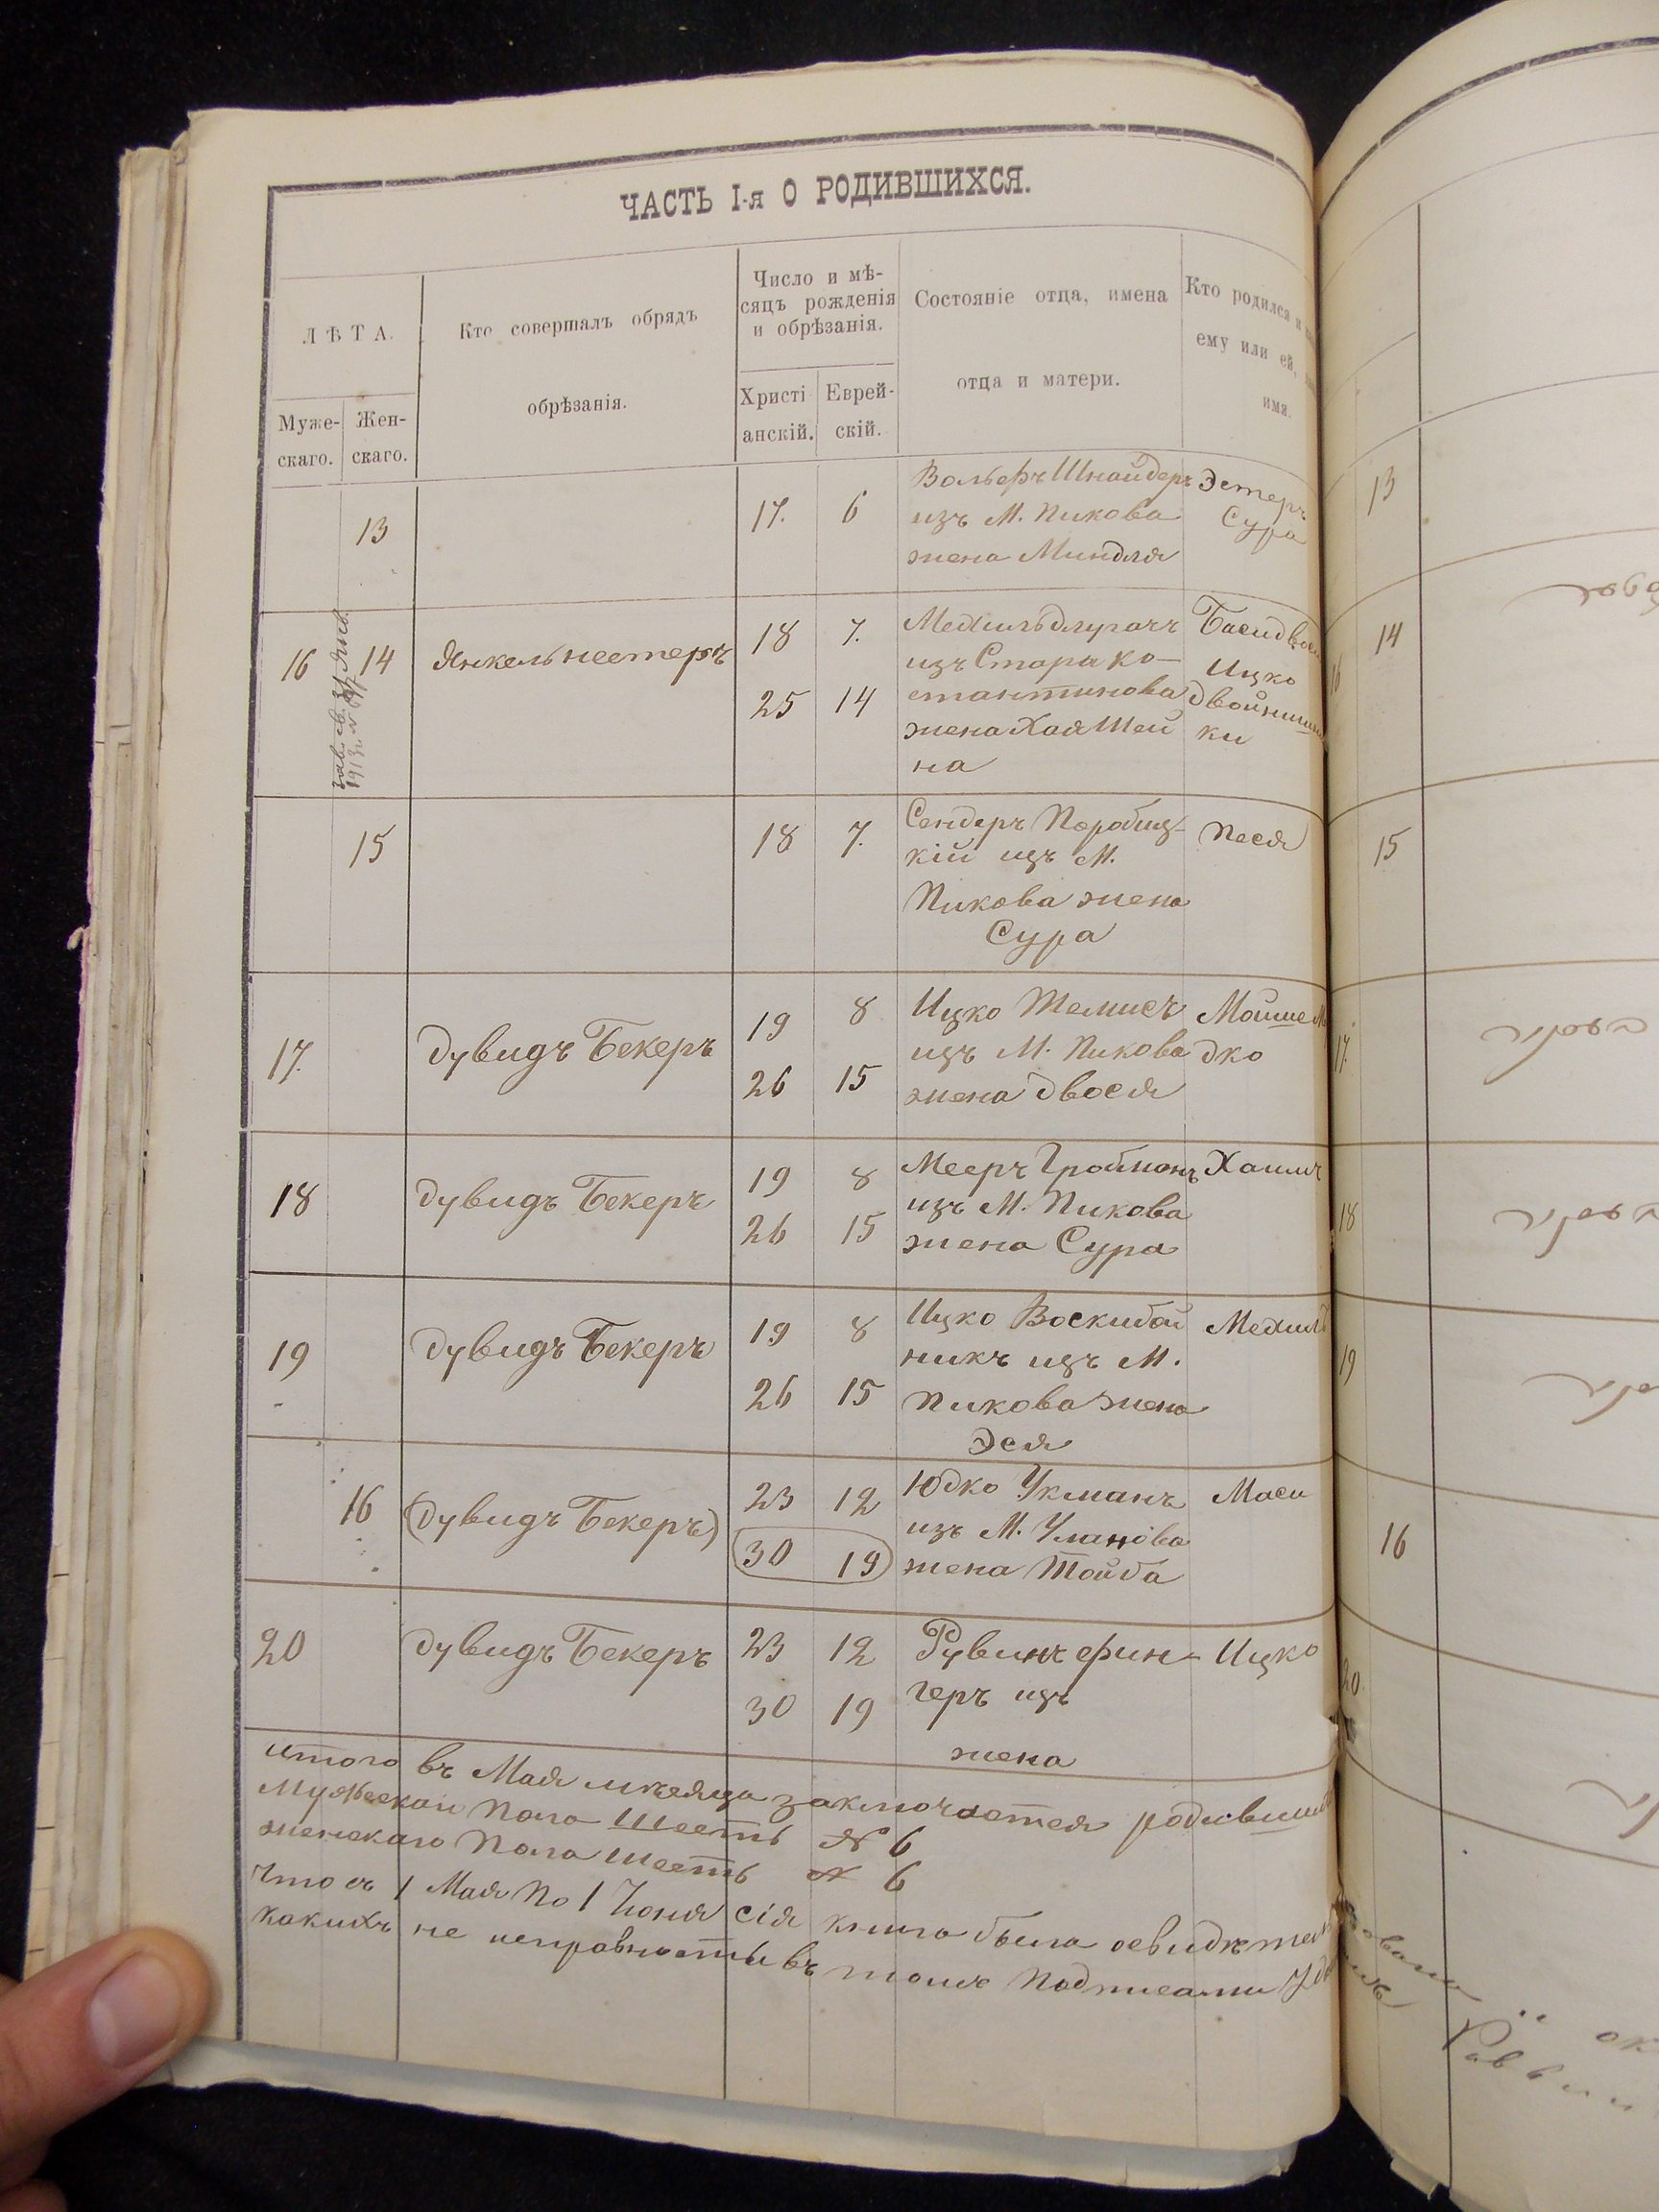 ЧАСТЬ I-я О РОДИВШИХСЯ.
ЛѢТА.
Муже-
скаго.
Жен-
скаго.
Кто совершалъ обрядъ
обрѣзанія.
Число и мѣ-
сяцъ рожденія
и обрѣзанія.
Христі
анскій.
Еврей-
скій.
Состояніе отца, имена
отца и матери.
Кто родился и
ему или ей,
имя.
13
17. 6
Вольфъ Шнайдеръ
изъ М. Пикова
жена Миндля
Эстеръ
Сура
13
16 14
Янкель нестеръ
18 7.
25 14
Мехиль длугачъ
изъ Стара Ко-
стантинова
жена Хая Шей
на
Ицко
двойниш
ки
14
16
15
18 7.
Сендеръ Поробиц-
кій изъ М.
Пикова жена
Сура
Песя
15
17.
дувидъ Бекеръ
19 8
26 15
Ицко Темисъ
изъ М. Пикова
жена двося
Мойше М
дко
17.
18
дувидъ Бекеръ
19 8
26 15
Мееръ Гройманъ
изъ М. Пикова
жена Сура
Хаимъ
18
19
дувидъ Бекеръ
19 8
26 15
Ицко Воскибой
никъ изъ М.
Пикова жена
Эся
Мехиль
19
16
(дувидъ Бекеръ)
23 12
30 19
Юдко Укманъ
изъ М. Уланова
жена Тойба
Маси
16
20
дувидъ Бекеръ
23 12
30 19
Рувинъ фин-
геръ изъ
жена
Ицко
20
итого въ Мая мѣсяца заключается родивших
Мужескаи Пола Шесть № 6
женскаго Пола шесть № 6
Что съ 1 Мая По 1 Іюня сія книга была освидѣтел
какихъ не исправность въ томъ Подписами